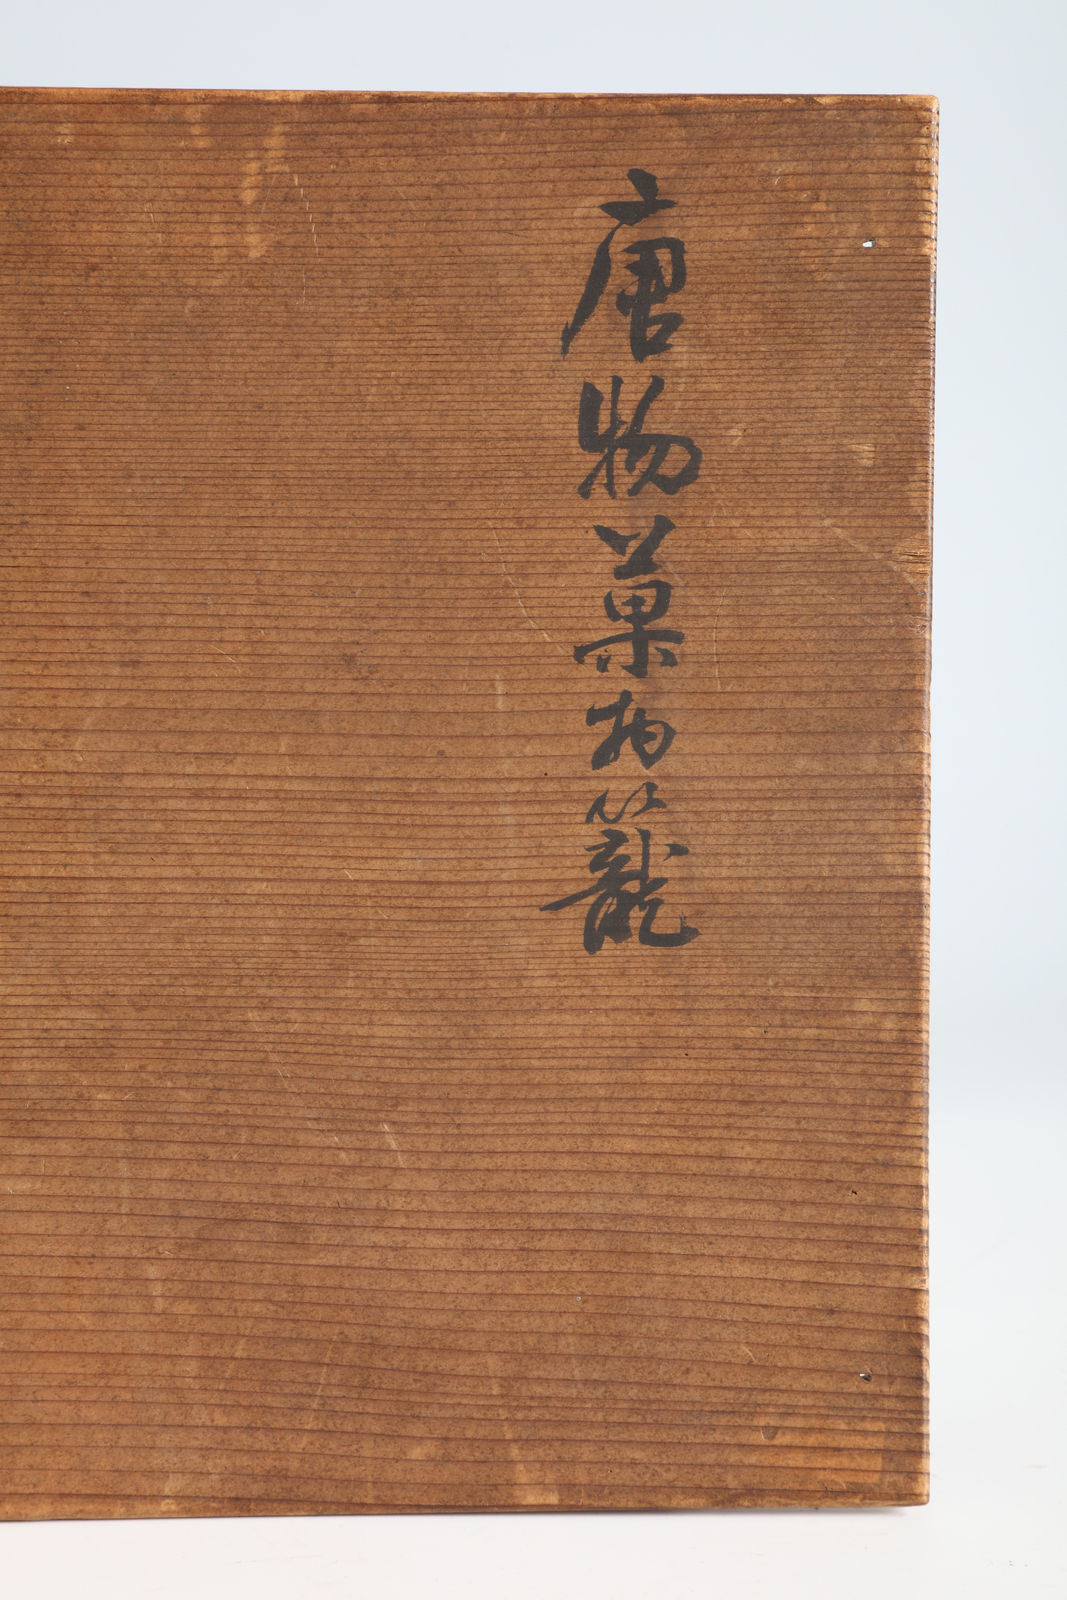 唐物菓物籠